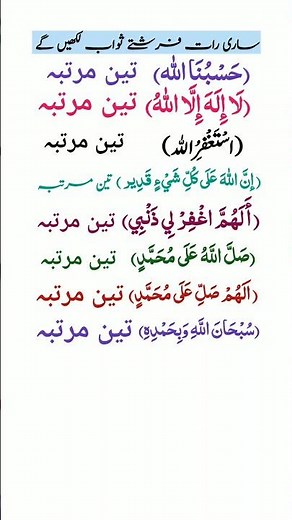 ساری رات فرشتے ثواب لکھیں گے
(حَسْبُنَا اللہ) تین مرتبہ
(لَا إِلَهَ إِلَّا اللهُ) تین مرتبہ
(اسْتَغْفِرُ الله) تین مرتبہ
(إِنَّ اللهَ عَلَى كُلِّ شَيْءٍ قَدِير) تین مرتبہ
(أَلَهُمَّ اغْفِرْ لِي ذَنْبِي) تین مرتبہ
(صَلَّ اللَّهُ عَلَى مُحَمَّدٍ) تین مرتبہ
(اَلَهُمْ صَلِّ عَلَى مُحَمَّدٍ) تین مرتبہ
(سُبْحَانَ اللَّهِ وَبِحَمْدِهِ) تین مرتبہ